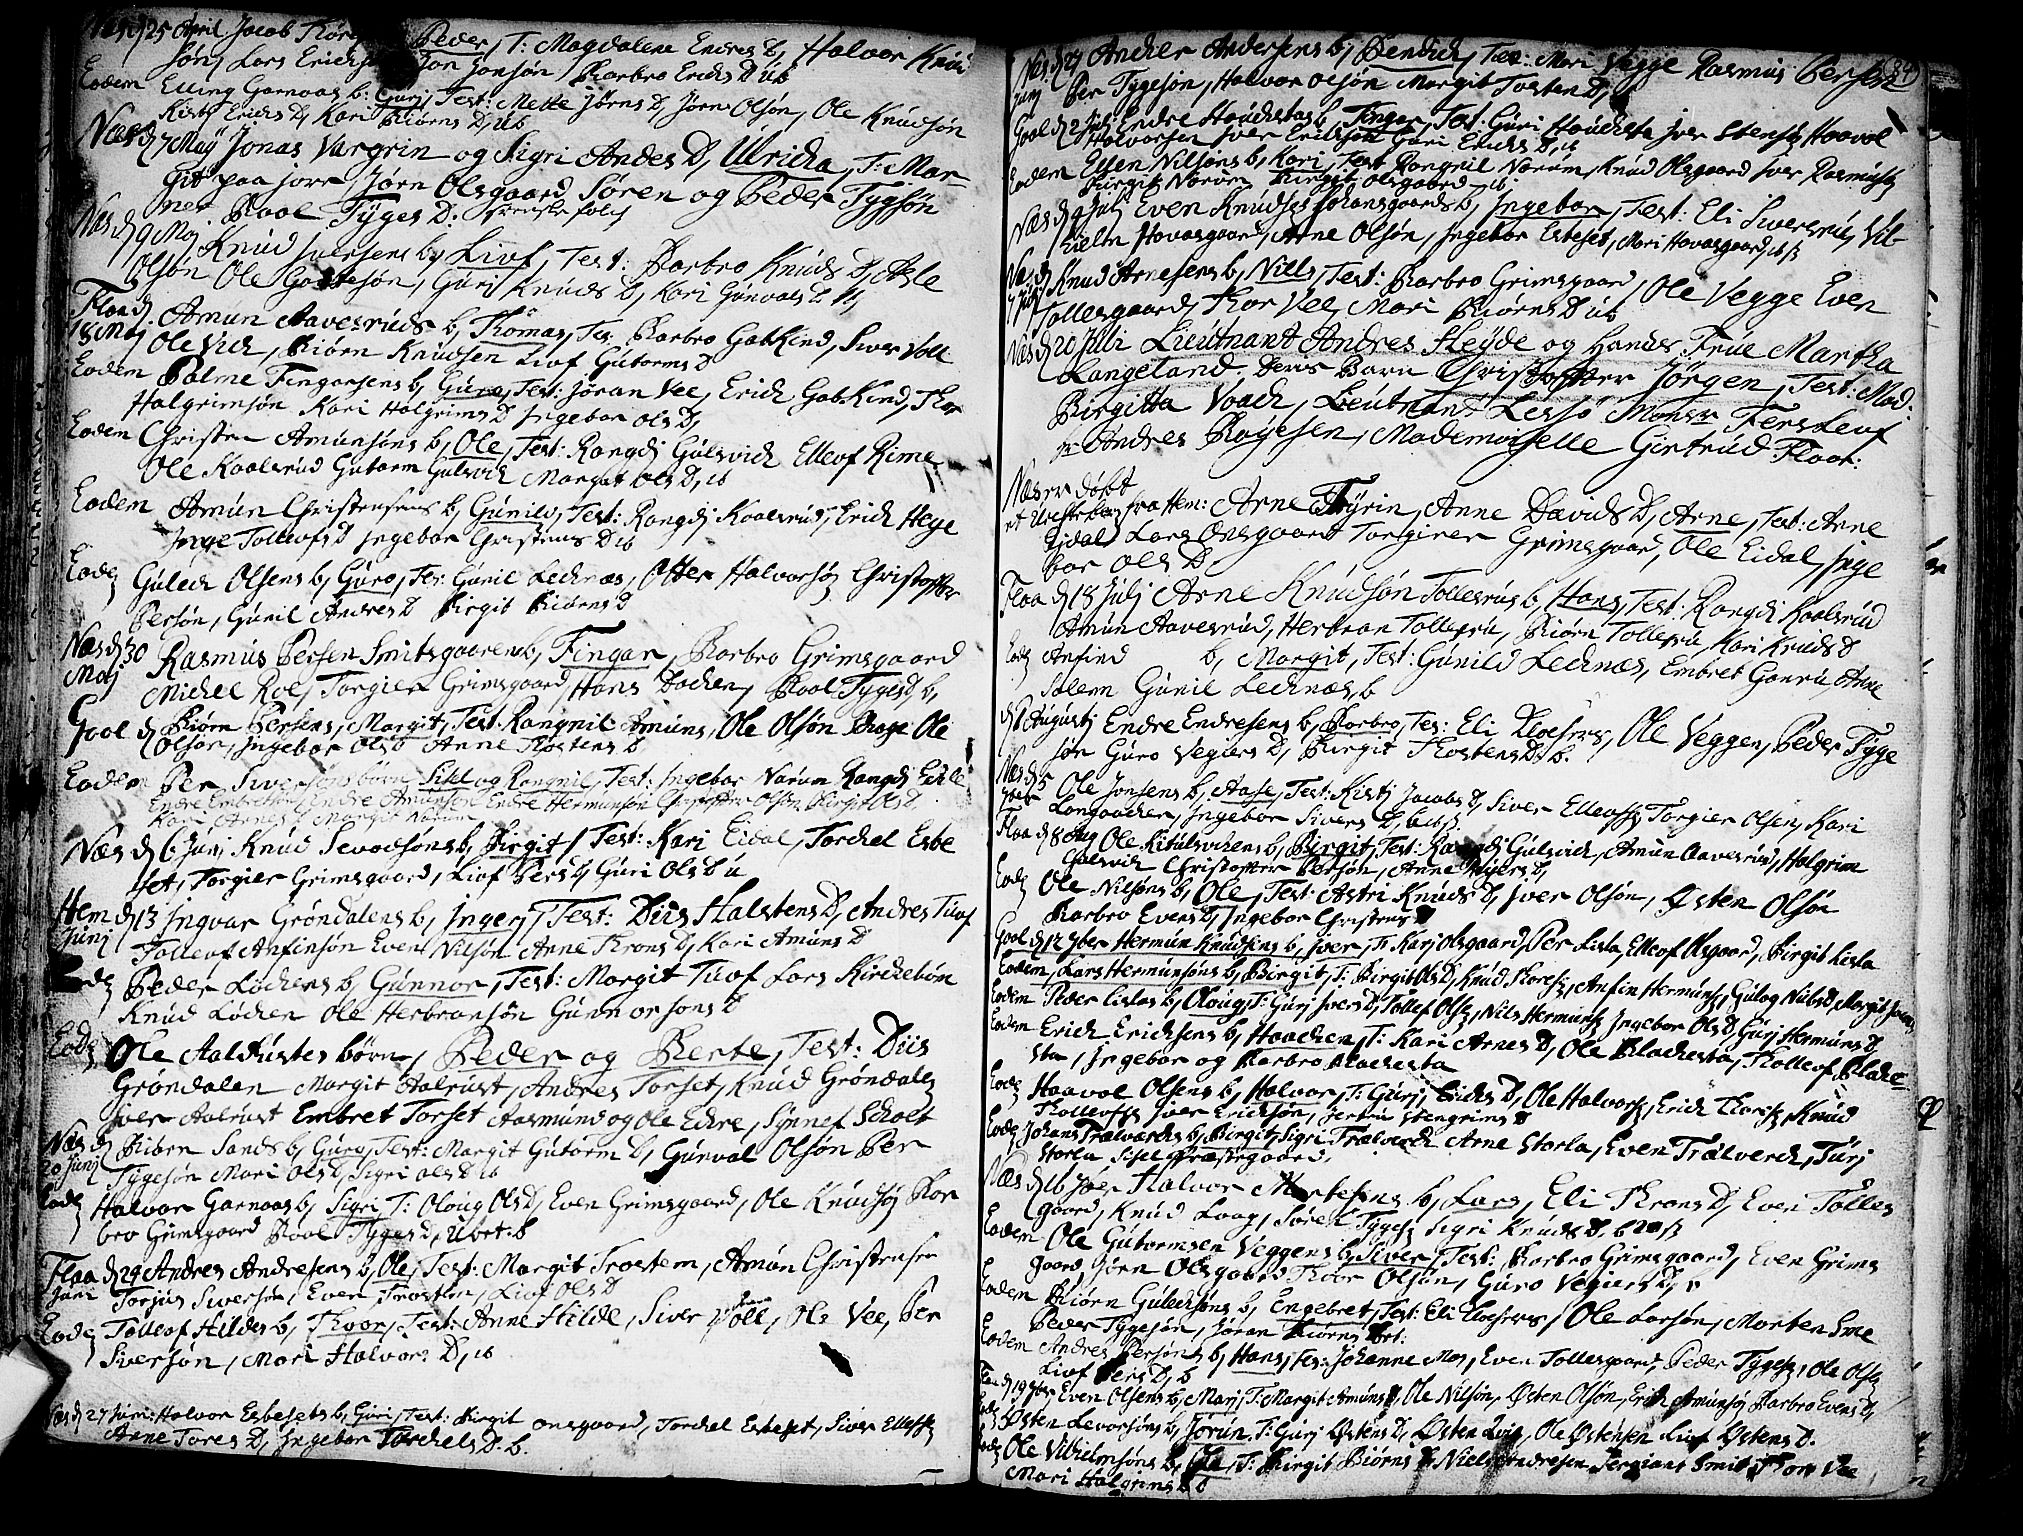 25 April Jacob Peder, T: Magdalena Endres D, Halvor Knud
søn, Lars Erichsøn Jon Jonsøn Barbro Erichs D ub
Eodem Elling Garnaas b: Guri, Test: Mette Jørns D, Jørn Olsøn, Ole Knudsøn
Kisti Erichs D, Kari Biørns D, ub
Næs d 7 Maÿ Jonas Vargrin og Sigri Andes D, Ulricha, T: Mar-
git paa jorr, Jørn Olsgaard Søren og Peder Tygsøn
ner Boel Tÿges D. Svenske folch
Næs d 9 Maj Knud Juersens b, Liof, Test: Barbro Knuds D, Asle
Olsøn Ole Gottesøn, Guri Knuds D, Kari Gunvals D ub
Flaa d Amun Aavesruds b, Thomas, Te: Barbro Gabkind, Siver Voll
18 Maj Ole Vich, Biørn Knudsen Liof Gutorms D
Eodem Palme Fingarsens b, Guro, Test: Jøran Vee, Erich Gabkind, Thor
Halgrimsøn Kari Halgrims D Ingebor Ols D,
Eodem Christen Amunsøns b, Ole, Test: Rangdi Gulsvich Ellof Rime
Ole Kaalsrud Gutorm Gulsvich Margit Ols D, ub
Eodem Amun Christensens b, Gunild, Test: Rangdi Kaalsrud, Erich Hege
Jørge Tollofs D Ingebor Christens D ub
Eod Gulech Olsens b, Guro, Te: Gunil Lechnæs, Otter Halvorsøn Christoffer
Persøn, Gunil Andres D Birgit Biørns D
Næs d 30 Rasmus Persen Smitsgaaren b, Fingar, Barbro Grimsgaard
Maj Michel Roe, Torgier Grimsgaard, Hans Dochen, Boel Tyges D, b,
Gool d Biørn Persens, Margit, Test: Rangnil Amuns, Ole Olsøn Brage Ole
Olsøn, Ingebor Ols D Anne Thostens D
Eodem Per Siversøns børn Sisel og Rangnil, Test: Ingebor Norum Rangdi Eckle
Endre Embretsøn, Endre Amunsøn Endre Hermunsøn Christopher Olsøn Birgit Ols D
Kari Arnes D Margit Norum
Næs d 6 Juni Knud Sevodsøns b, Birgit, Test: Kari Eidal, Torchel Esbe
set, Torgier Grimsgaard, Liof Pers D, Guri Ols D u
Hem d 13 Ingvar Grøndalens b, Ingerj, Test: Diis Halstens D, Andres Tuof
Junj Tolleof Anfinsøn Even Nilsøn Anne Throns D, Kari Amuns D
Eod Peder Løchens b, Gunnor, Test: Margit Tuof Lars Kirchebøn
Knud Løchen Ole Herbransøn Gunnor Jons D
Eod Ole Aalrustes børn, Peder og Berte, Test: Diis
Grøndalen Margit Aalrust, Andres Torset, Knud Grøndalen
Iver Aalrust Embret Torset Aasmund og Ole Eckre, Synnef Scholt
Næs d Biørn Sands b, Guro, Test: Margit Gutorm D, Gunval Olsøn Per
20 Junj Tygesøn Mari Ols D, Sigri Ols D ub
Eod Halvor Garnaas b, Sigri T: Oloug Ols D, Even Grimsgaard, Ole Knudsøn Bor
bro Grimsgaard Boel Tyges D, Ubet. b
Flaa d 24 Andres Andresens b, Ole, Test: Margit Trostem, Amun Christensen
Juni Torjus Siversøn, Even Trostem, Liof Ols D
Eod Tolleof Hildes b, Thoor, Test: Anne Hilde, Siver Voll, Ole Vee, Per
Siversøn, Mari Halvors D, ub
Næs d 27 Juni: Halvor Esbesets b, Guri, Test: Birgit Onsgaard, Torchel Esbeset, Siver Ellefs
Anne Tores D, Ingebor Torchels D. b.
84
Næs d 29 Ancher Andersens b, Bendich, Tes: Mari Vegge Rasmus Persen
Junj Per Tygesøn, Halvor Olsøn Margit Tosten D,
Gool d 2 Juli Endre Houchestas b, Fingar, Test: Guri Houchesta Iver Stensen Haavol
Halvorsen Iver Erichsøn Guri Erichs D, ub
Eodem Essen Nilsøns b, Kari, Test Rangnil Norum, Knud Olsgaard Iver Rasmusen
Birgit Norum Birgit Olsgaard, ub
Næs d 4 Julj Even Knudses Johansgaards b, Ingebor, Test: Eli Siversrud, Vil-
hielm Hovasgaard, Arne Olsøn, Ingebor Esbeset, Mari Hovasgaard, ub
Næs d Knud Arnesens b, Nills, Test: Barbro Grimsgaard, Ole Vegge Even
7 Juli Tollesgaard, Thor Vee, Mari Biørns D ub
Næs d 20 Juli Lieutnant Andres Heÿde og hands Frue Martha
Langeland. Deres Barn Christoffer Jørgen, Test: Mad:
Birgitta Voach, Leutnant Lessø Monsr Fersleof
Andres Bogesen, Mademoiselle Girtrud Floor:
Næs er døbt
et Uechte barn fra Hem: Arne Tÿrin, Anne Davids D, Arne, Test: Arne
Eidal Lars Onsgaard Torgier Grimsgaard, Ole Eidal, Inge
bor Ols D.
Flaa d 18 Julj Arne Knudsøn Tollesrus b, Hans, Test: Rangdi Kaalsrud
Amun Aavesrud, Herbran Tollefru, Biørn Tollefru Kari Knuds D
Eod Anfind b, Margit, Test: Gunild Lechnæs, Embret Ganru Arne
Solem Gunil Lechnæs, b
d 1 Augustj Endre Endresens b, Barbro, Tes: Eli Klochers, Ole Veggen, Peder Tyge
søn Guro Vegiers D, Birgit Thostens D: b.
Næs d 5 Ole Jonsens b, Aase, Test: Kistj Jacobs D, Siver Ellevsen Torgier Olsen, Kari
Longachen, Ingebor Sivers D, b
Flaa d 8 Aug Ole Kitulsvichens b, Birgit, Test: Rangdi Gulsvich, Amun Aavesrud, Halgrim
Gulsvich Christoffer Persøn, Anne D,
Eod Ole Nilsøns b, Ole, Test: Astri Knuds D, Iver Olsøn, Østen Olsøn
Barbro Evens D, Ingebor Christens D
Gool d 12 7ber Hermun Knudsens b, Iver, T: Karj Olsgaard, Per Lista, Elleof Olsgaard, Birgit Lista
Eodem, Lars Hermunsøns b, Birgit, T: Birgit Ols D, Knud Thores, Anfin Hermuns, Gulog Nubs D, Margit
Eodem Peder Lislas b, Oloug, T: Gurj Ivers D, Tollef Ols, Nils Hermuns Ingebor Ols D, Gurj Hermuns D
Eodem Erich Erichsens b, Haachen, T: Kari Arnes D, Ole Blachesta, Tolleof Blache-
sta, Ingebor og Barbro Blachesta
Eod Haavol Olsens b, Halvor, T: Gurj, Erichs D, Ole Halvors, Erich Thores, Knud
Tolleofs Iver Erichsøn, Stengrims D
Eod Johans Trælverchs b, Birgit, Sigri Trælverch Arne Storla, Even Trælverch, Turj
Storla Sisel Præstegaard,
Næs d 16 7ber Halvor b, Lars, Eli Throns D, Even Tolles
gaard, Knud Loog, Søren Tyges Sigri Knuds D, b
Eodem Ole Gutormsen Veggens b, Siver, Test: Barbro Grimsgaard, Even Grims
gaard Jørn Olsgaard Thoor Olsøn, Guro Vegiers D,
Eodem Biørn Gulechsøns b, Engebret, Test: Eli Klochers, Ole Larsøn, Morten Sme
Peder Tygesøn, Jøran Biørns
Eodem Andres Persøns b, Hans, Tes: Johanne Moe, Even Tollesgaard, Peder Tyges, Ole Ols
Liof Pers D, b
Flaa d 19 7ber, Even Olsens b, Marj, T: Margit Amuns D, Ole Nilsøn, Østen Olsøn, Erich Amunsøn Barbro Evens D,
Eod Østen Levorsøns b, Jorun, T: Gurj Østens D, Østen Lvig, Ole Østensen Liof Østens D.
Eod Ole Vilhelmsøns b, Ole, T: Birgit Biørns D, Niels Andresen Sergiant Smit, Thor Vee
Mari Halgrims D b